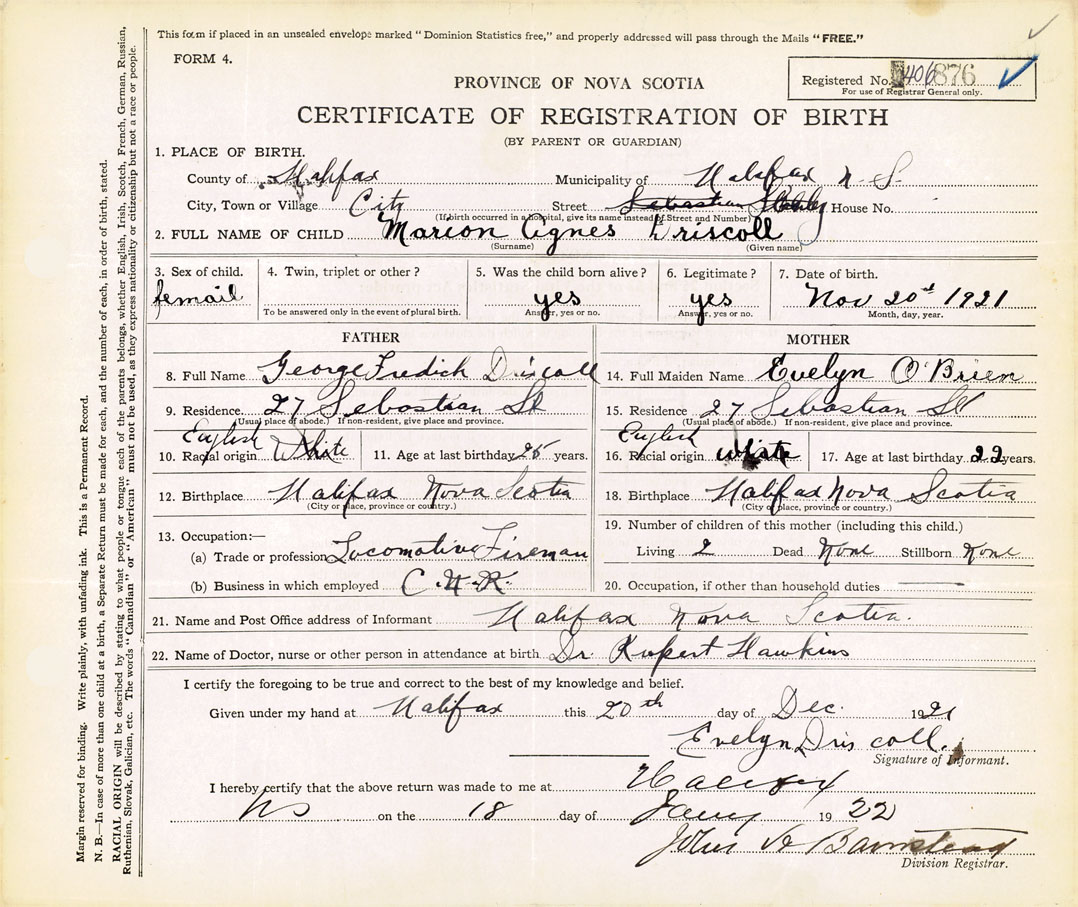 This form if placed in an unsealed envelope marked "Dominion Statistics free," and properly addressed will pass through the Mails "FREE."
FORM 4.
Registered No. 406876
For use of Registrar General only.
PROVINCE OF NOVA SCOTIA
CERTIFICATE OF REGISTRATION OF BIRTH
(BY PARENT OR GUARDIAN)
1. PLACE OF BIRTH.
County of Halifax Municipality of Halifax N. S.
City, Town or Village City Street Sebastian House No.
(If birth occurred in a hospital, give its name instead of Street and Number)
2. FULL NAME OF CHILD Marion Agnes Driscoll
(Surname) (Given name)
3. Sex of child. 4. Twin, triplet or other? 5. Was the child born alive? 6. Legitimate? 7. Date of birth.
femail yes yes Nov 20st 1921
To be answered only in the event of plural birth. Answer, yes or no. Answer, yes or no. Month, day, year.
FATHER MOTHER
8. Full Name George Fredick Driscoll 14. Full Maiden Name Evelyn O'Brien
9. Residence 27 Sebastian St 15. Residence 27 Sebastian St
(Usual place of abode.) If non-resident, give place and province. (Usual place of abode.) If non-resident, give place and province.
English English
10. Racial origin White 11. Age at last birthday 25 years. 16. Racial origin white 17. Age at last birthday 22 years.
12. Birthplace Halifax Nova Scotia 18. Birthplace Halifax Nova Scotia
(City or place, province or country.) (City or place, province or country.)
13. Occupation:— 19. Number of children of this mother (including this child.)
(a) Trade or profession Locomotive Fireman Living 2 Dead None Stillborn None
(b) Business in which employed C.N.R. 20. Occupation, if other than household duties
21. Name and Post Office address of Informant Halifax Nova Scotia.
22. Name of Doctor, nurse or other person in attendance at birth Dr. Rupert Hawkins
I certify the foregoing to be true and correct to the best of my knowledge and belief.
Given under my hand at Halifax this 20th day of Dec. 1921
Evelyn Driscoll.
Signature of Informant.
I hereby certify that the above return was made to me at Halifax
NS on the 18 day of Jany 1922
John A Barnstead
Division Registrar.
Margin reserved for binding. Write plainly, with unfading ink. This is a Permanent Record.
N. B.—In case of more than one child at a birth, a Separate Return must be made for each, and the number of each, in order of birth, stated.
RACIAL ORIGIN will be described by stating to what people or tongue each of the parents belongs, whether English, Irish, Scotch, French, German, Russian,
Ruthenian, Slovak, Galician, etc. The words "Canadian" or "American" must not be used, as they express nationality or citizenship but not a race or people.